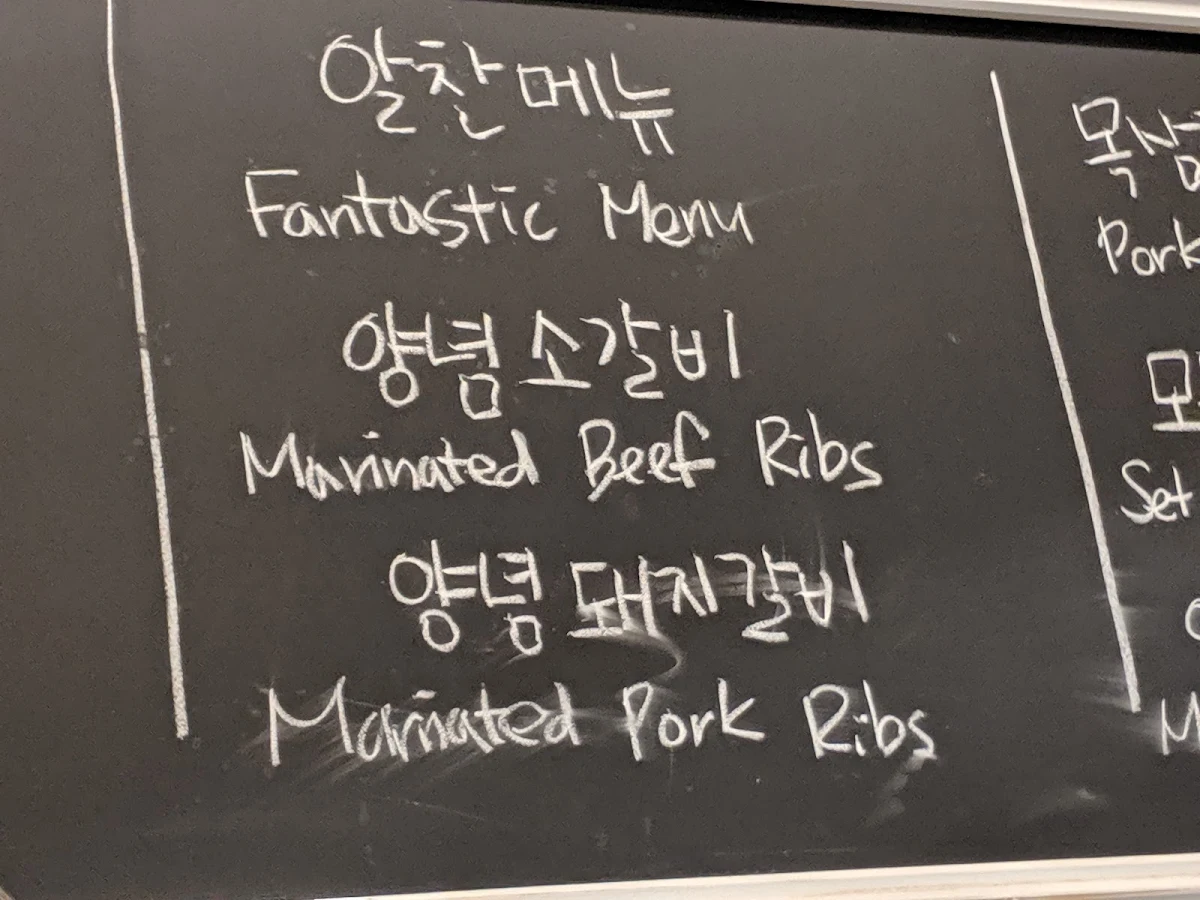 알찬메뉴
Fantastic Menu
양념 소갈비
Marinated Beef Ribs
양념 돼지갈비
Marinated Pork Ribs
목
Pork
Set